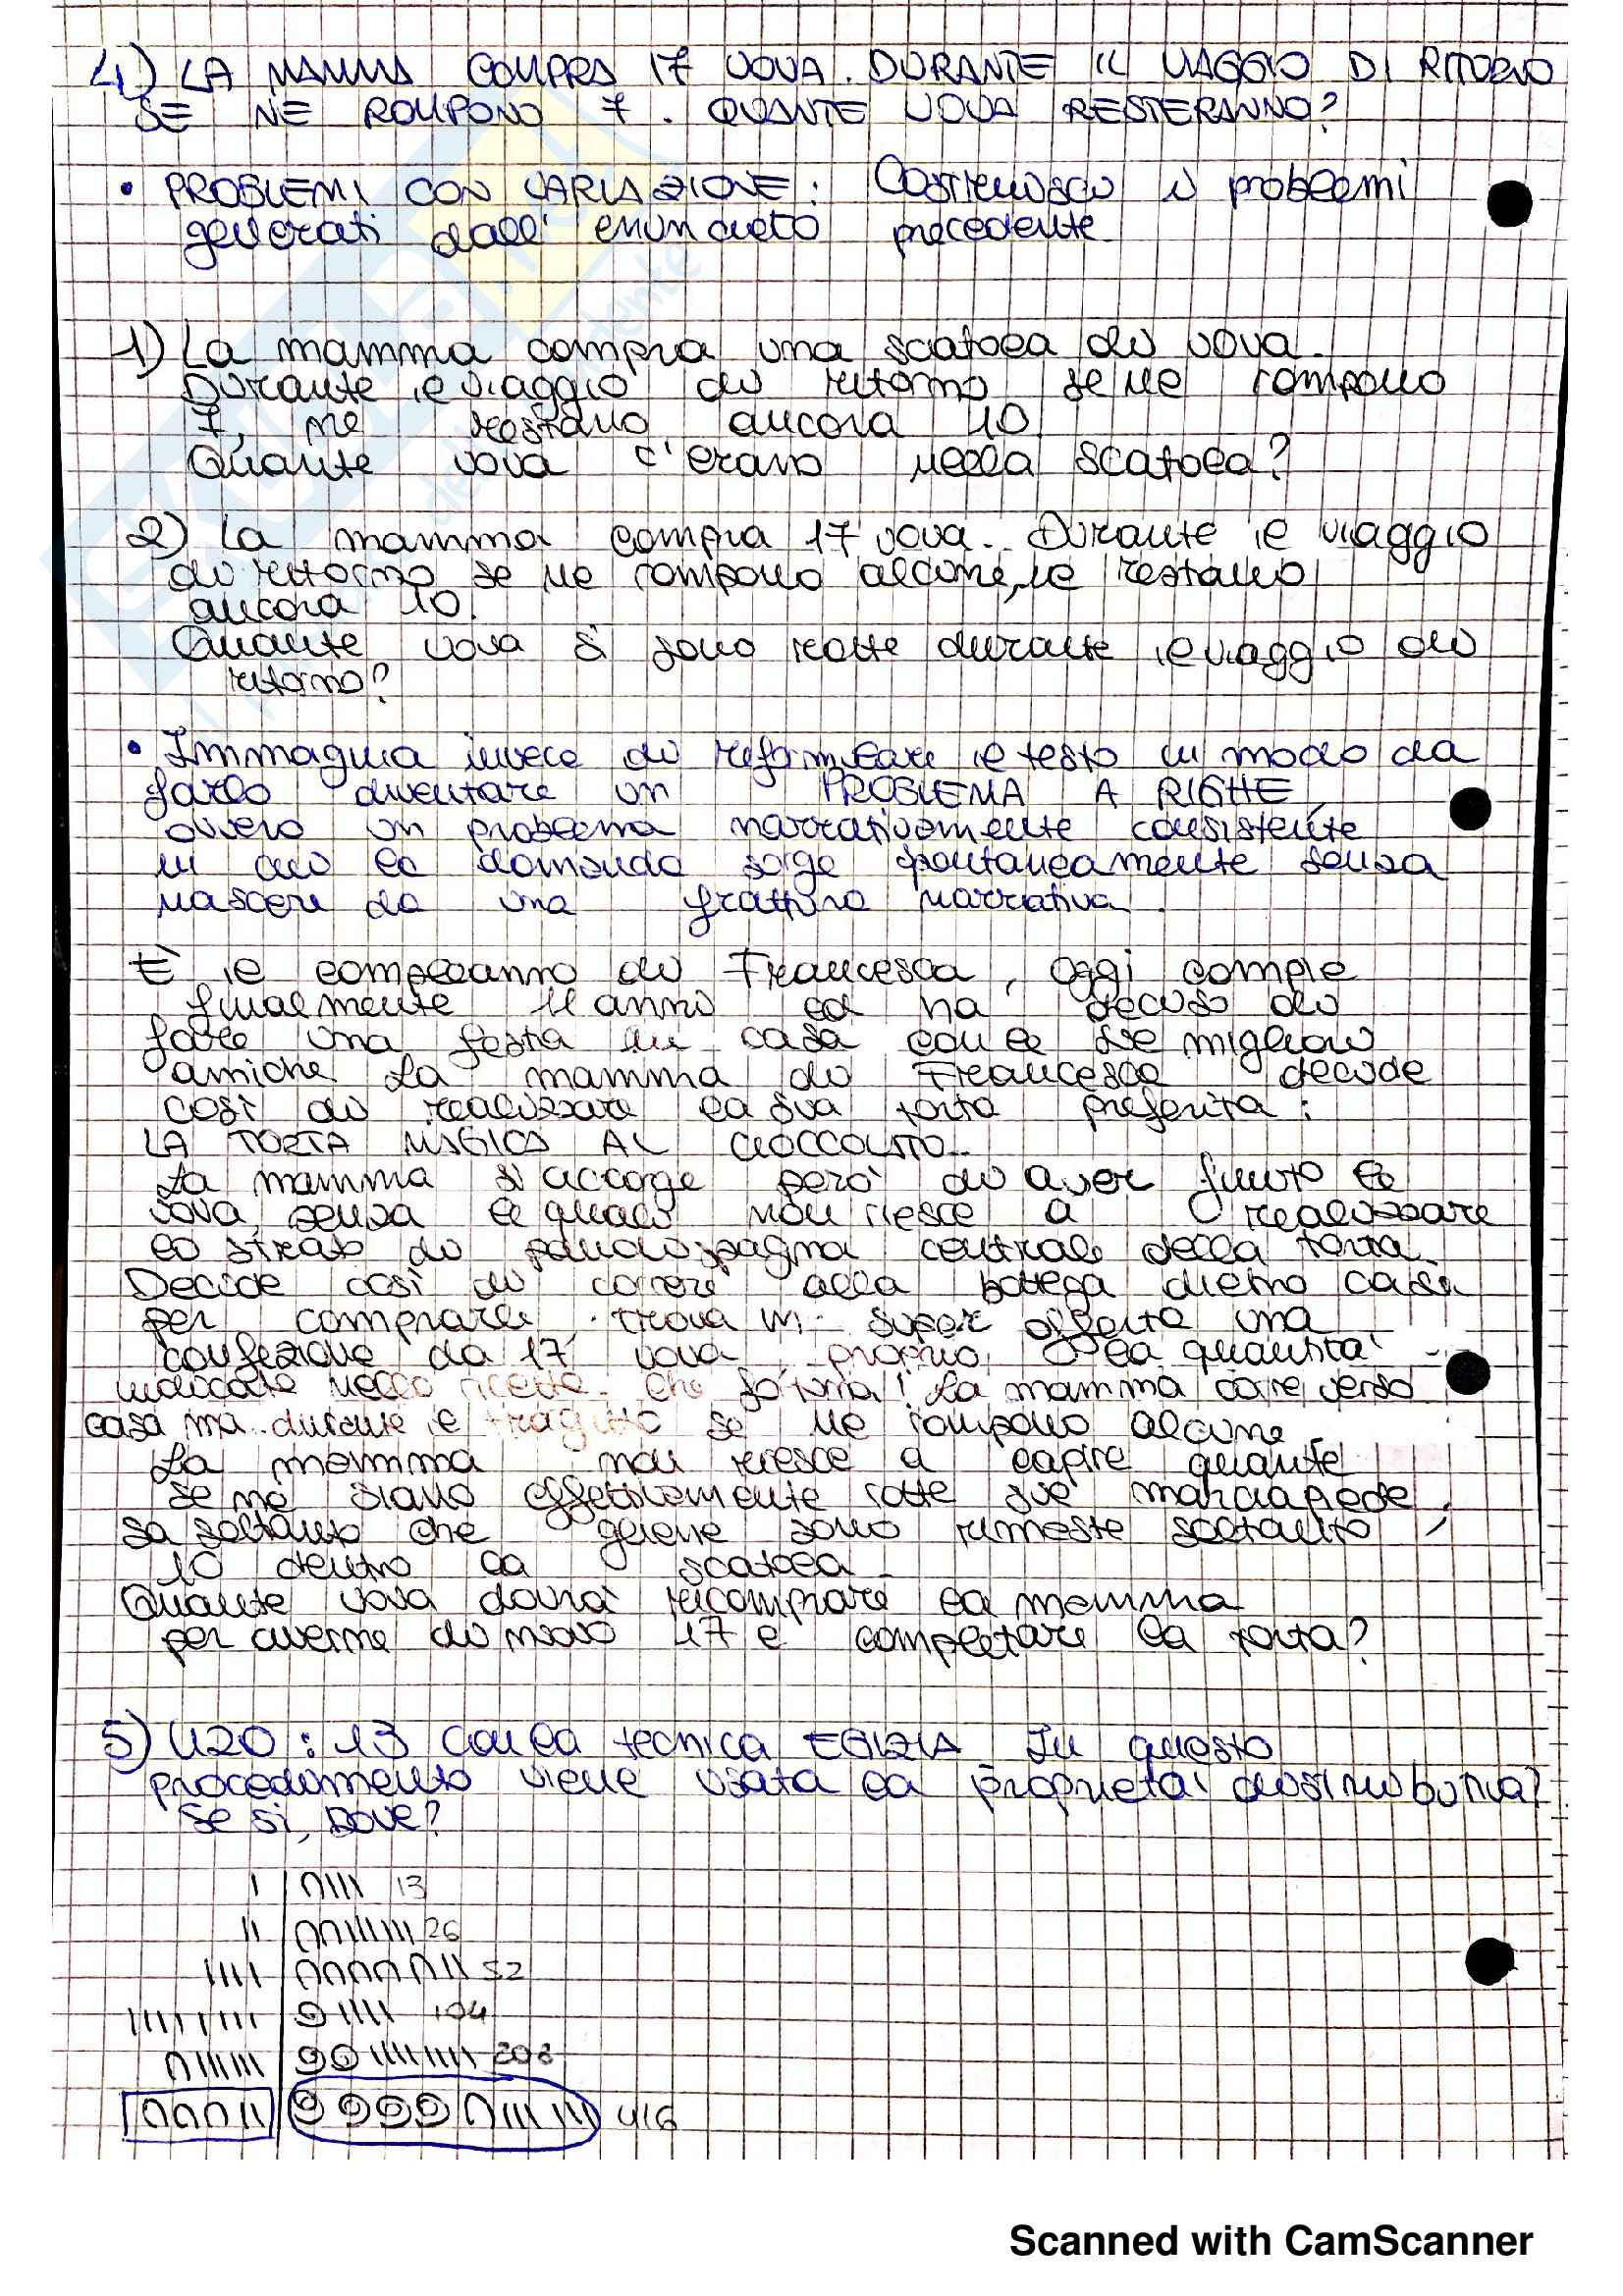 4) LA MAMMA COMPRA 17 UOVA. DURANTE IL VIAGGIO DI RITORNO
SE NE ROMPONO 7. QUANTE UOVA RESTERANNO?
• PROBLEMI CON VARIAZIONE: Costruisco i problemi
generati dall'enunciato precedente
1) La mamma compra una scatola di uova.
Durante il viaggio di ritorno se ne rompono
7, ne restano ancora 10.
Quante uova c'erano nella scatola?
2) La mamma compra 17 uova. Durante il viaggio
di ritorno se ne rompono alcune, ne restano
ancora 10.
Quante uova si sono rotte durante il viaggio di
ritorno?
• Immagina invece di riformulare il testo in modo da
farlo diventare un PROBLEMA A RIGHE,
ovvero un problema narrativamente consistente
in cui la domanda sorge spontaneamente senza
nascere da una frattura narrativa.
È il compleanno di Francesca, oggi compie
finalmente 11 anni ed ha deciso di
fare una festa in casa con le sue migliori
amiche. La mamma di Francesca decide
così di realizzare la sua torta preferita:
LA TORTA MAGICA AL CIOCCOLATO.
La mamma si accorge però di aver finito le
uova, senza le quali non riesce a realizzare
lo strato di pandispagna centrale della torta.
Decide così di correre alla bottega dietro casa
per comprarle. Trova in super offerta una
confezione da 17 uova, proprio la quantità
indicata nella ricetta. Che fortuna! La mamma corre verso
casa ma durante il tragitto se ne rompono alcune.
La mamma non riesce a capire quante
se ne siano effettivamente rotte sul marciapiede,
sa soltanto che gliene sono rimaste soltanto
10 dentro la scatola.
Quante uova dovrà ricomprare la mamma
per averne di nuovo 17 e completare la torta?
5) 420 : 13 con la tecnica EGIZIA. In questo
procedimento viene usata la proprietà distributiva?
Se sì, DOVE?
13
26
52
104
208
416
Scanned with CamScanner